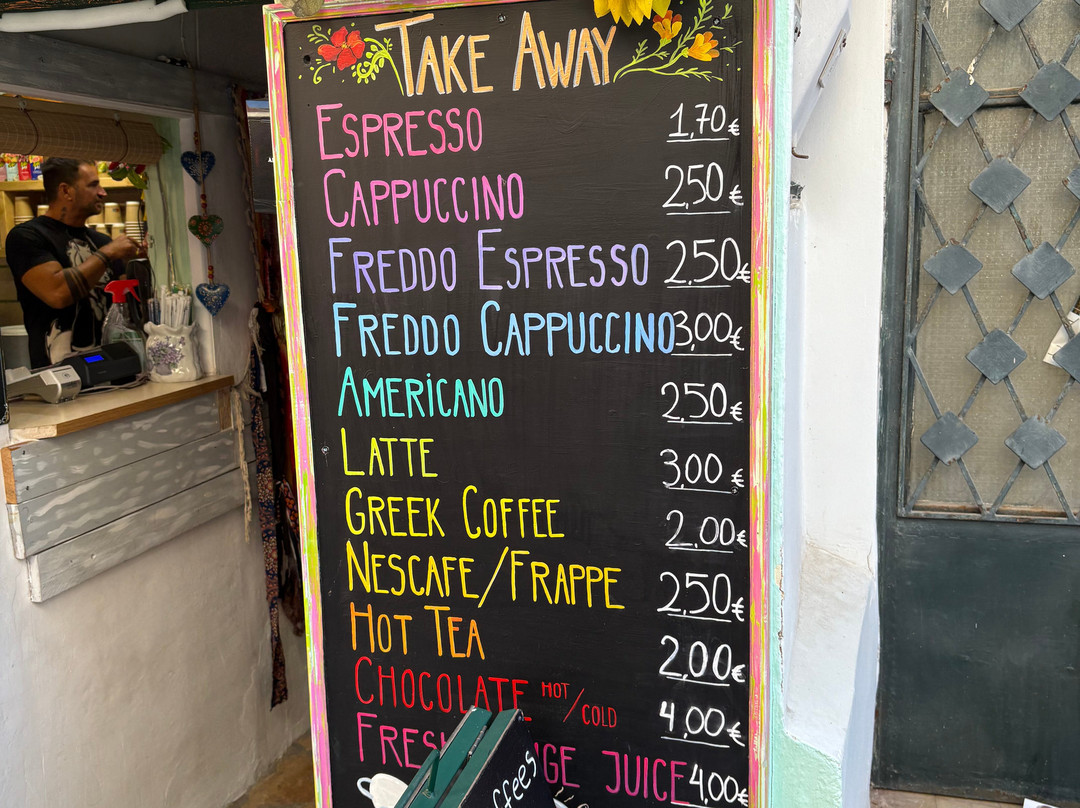 TAKE AWAY
ESPRESSO 1,70€
CAPPUCCINO 2,50€
FREDDO ESPRESSO 2,50€
FREDDO CAPPUCCINO 3,00€
AMERICANO 2,50€
LATTE 3,00€
GREEK COFFEE 2,00€
NESCAFE/FRAPPE 2,50€
HOT TEA 2,00€
CHOCOLATE HOT/COLD 4,00€
JUICE 4,00€